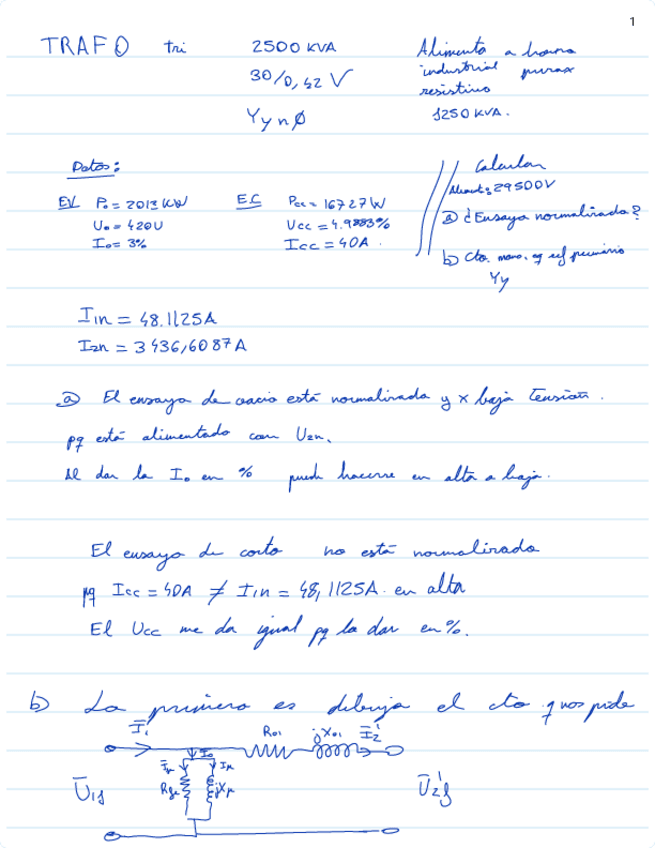 1
TRAFO tri 2500 KVA
30/0,42 V
Yynø
Alimenta a horno
industrial purax
resistivo
1250 KVA.
Datos:
EV P₀ = 2013 KW
U₀ = 420V
I₀ = 3%
EC Pcc = 16727W
Ucc = 4.9883%
Icc = 40A.
Calcular
Aliment, 29500V
a) ¿Ensayo normalizado?
b) Cto. mono. eq ref primario
Yy
I1n = 48.1125A
I2n = 3436,6087A
a) El ensayo de vacío está normalizado y x baja tensión.
pq está alimentado con U2n.
Al dar la I₀ en % puede hacerse en alta o baja.
El ensayo de corto no está normalizado
pq Icc = 40A ≠ I1n = 48,1125A. en alta
El Ucc me da igual pq la dan en %.
b) Lo primero es dibujar el cto q nos pide
I̅₁ I₀ R01 jX01 I̅₂'
Iμ
jXμ
U̅1f U̅2'f